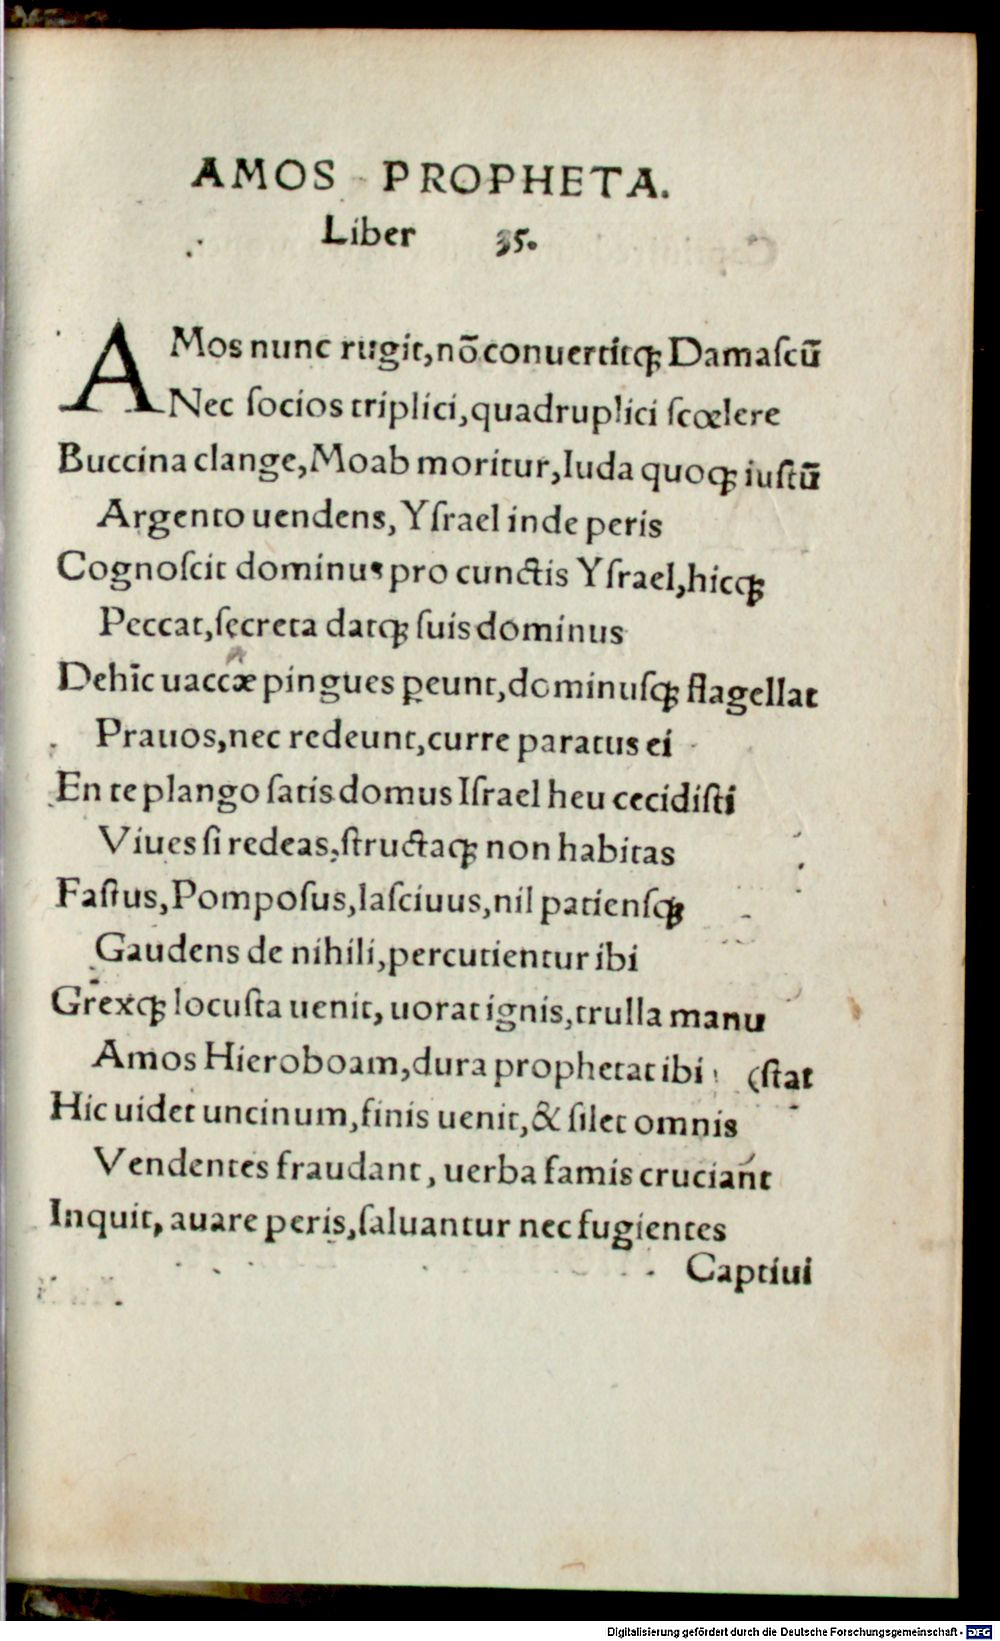 AMOS PROPHETA.
Liber 35.
AMos nunc rugit,nõ conuertitqꝫ Damaſcũ
Nec ſocios triplici,quadruplici ſcœlere
Buccina clange,Moab moritur,Iuda quoqꝫ iuſtũ
Argento uendens, Yſrael inde peris
Cognoſcit dominus pro cunctis Yſrael,hicqꝫ
Peccat,ſecreta datqꝫ ſuis dominus
Dehīc uaccæ pingues ꝑeunt,dominuſqꝫ flagellat
Prauos,nec redeunt,curre paratus ei
En te plango ſatis domus Iſrael heu cecidiſti
Viues ſi redeas,ſtructaqꝫ non habitas
Faſtus,Pompoſus,laſciuus,nil patienſqꝫ
Gaudens de nihili,percutientur ibi
Grexqꝫ locuſta uenit, uorat ignis,trulla manu
Amos Hieroboam,dura prophetat ibi (ſtat
Hic uidet uncinum,finis uenit,& ſilet omnis
Vendentes fraudant, uerba famis cruciant
Inquit, auare peris,ſaluantur nec fugientes
Captiui
Digitalisierung gefördert durch die Deutsche Forschungsgemeinschaft - DFG